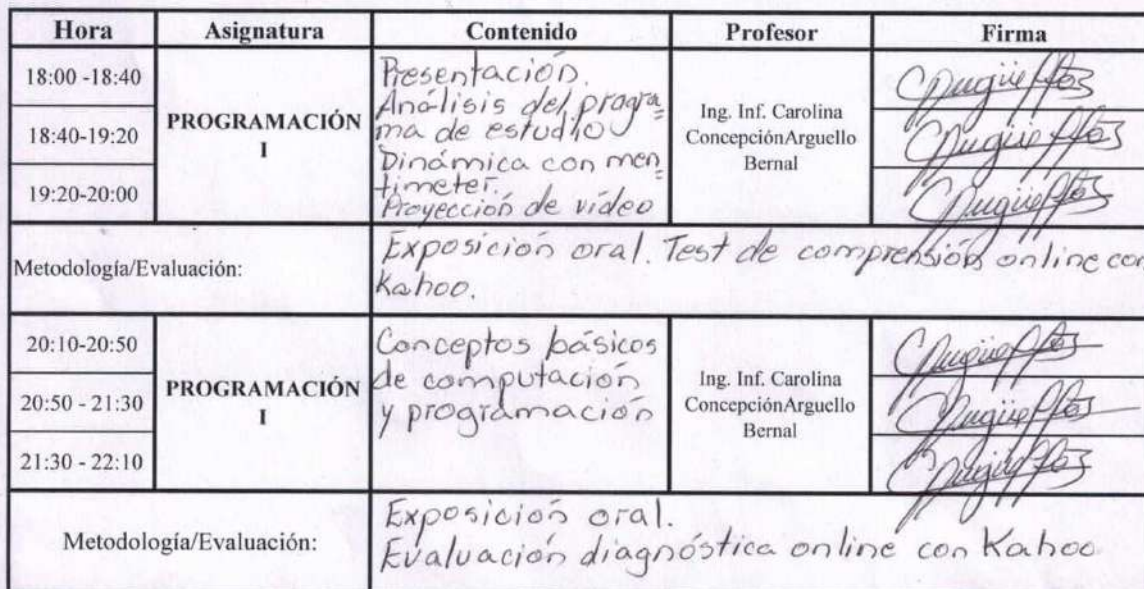 Hora Asignatura Contenido Profesor Firma
18:00 -18:40
18:40-19:20
19:20-20:00
PROGRAMACIÓN
I
Presentación.
Análisis del progra=
ma de estudio
Dinámica con men=
timeter.
Proyección de video
Ing. Inf. Carolina
ConcepciónArguello
Bernal
Metodología/Evaluación:
Exposición oral. Test de comprensión online con
Kahoo.
20:10-20:50
20:50 - 21:30
21:30 - 22:10
PROGRAMACIÓN
I
Conceptos básicos
de computación
y programación
Ing. Inf. Carolina
ConcepciónArguello
Bernal
Metodología/Evaluación:
Exposición oral.
Evaluación diagnóstica online con Kahoo